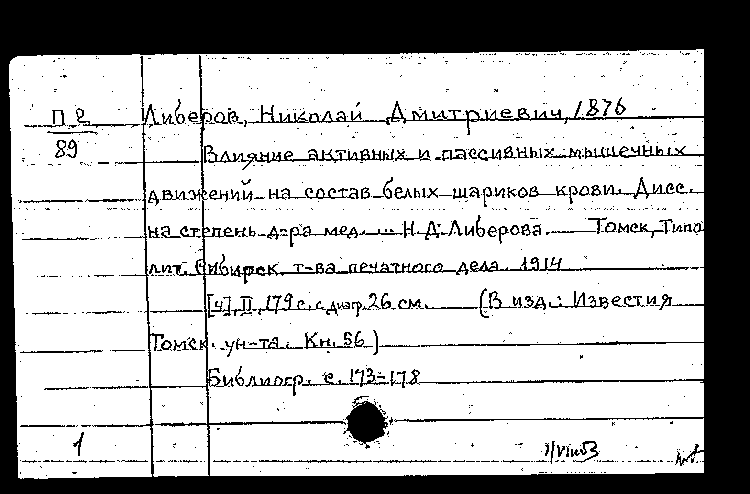 П 2 Либеров, Николай Дмитриевич, 1876
89 Влияние активных и пассивных мышечных
движений на состав белых шариков крови. Дисс.
на степень д-ра мед. ... Н.Д. Либерова. Томск, Типо
лит. Сибирск. т-ва печатного дела. 1914
[4], II, 179 с. с диагр. 26 см. (В изд.: Известия
Томск. ун-та. Кн. 56)
Библиогр. с. 173-178
1